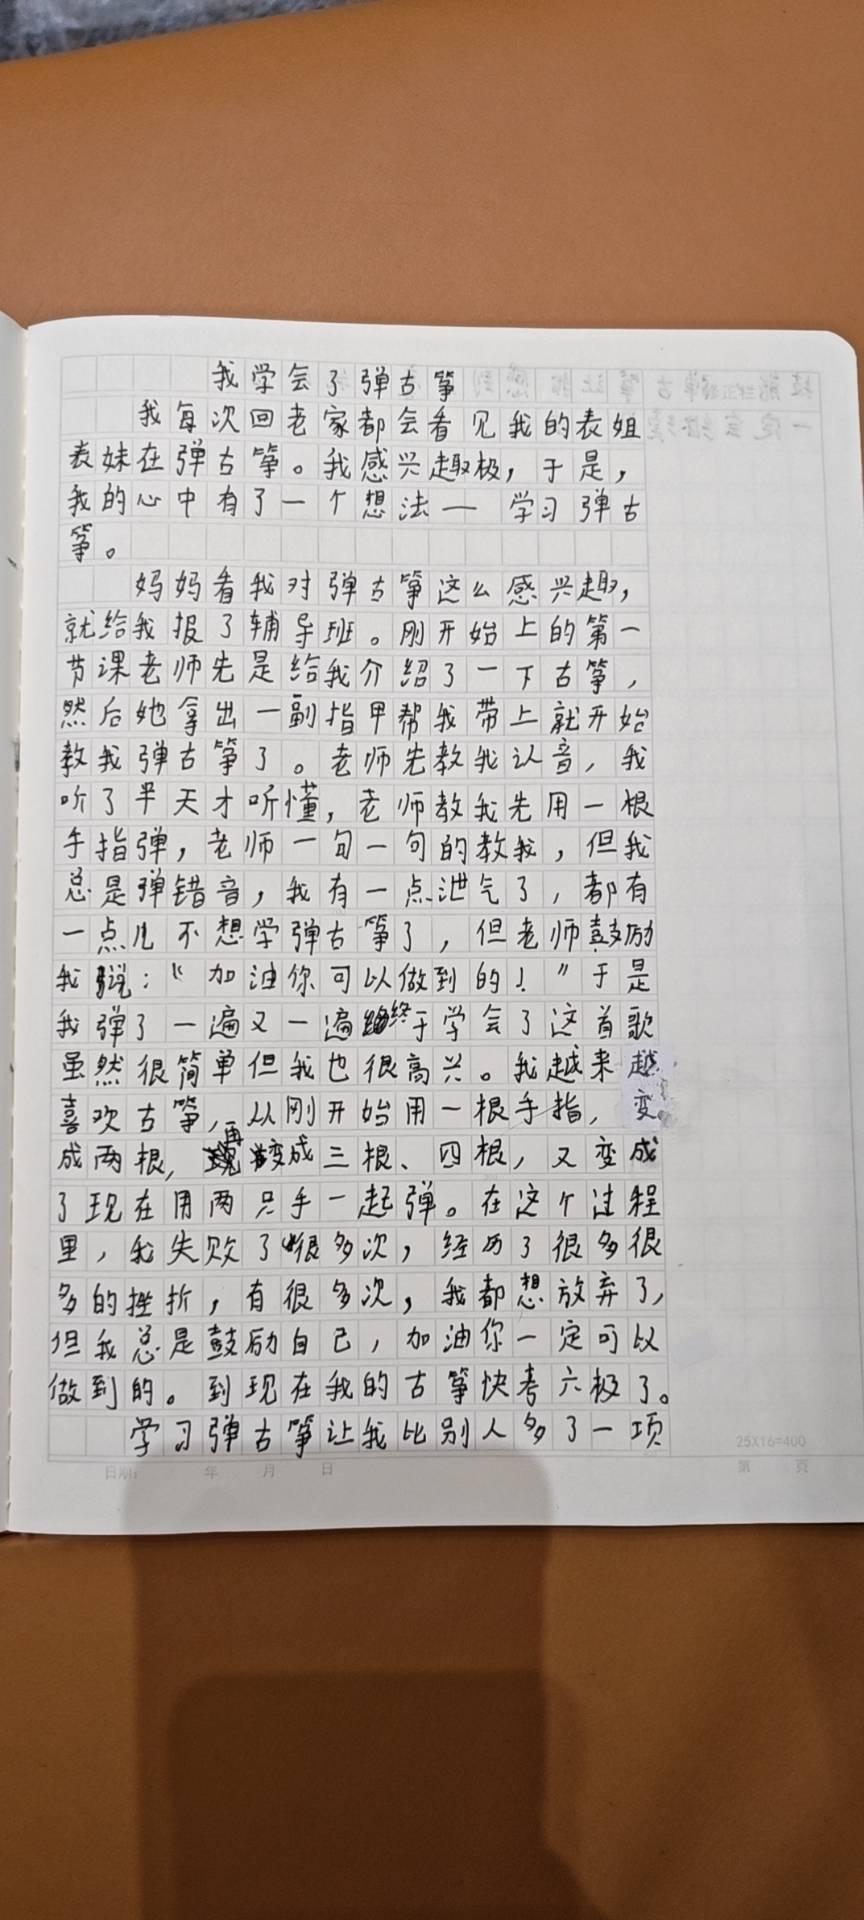 我学会了弹古筝
我每次回老家都会看见我的表姐
表妹在弹古筝。我感兴趣极，于是，
我的心中有了一个想法——学习弹古
筝。
妈妈看我对弹古筝这么感兴趣，
就给我报了辅导班。刚开始上的第一
节课老师先是给我介绍了一下古筝，
然后她拿出一副指甲帮我带上就开始
教我弹古筝了。老师先教我认音，我
听了半天才听懂，老师教我先用一根
手指弹，老师一句一句的教我，但我
总是弹错音，我有一点泄气了，都有
一点儿不想学弹古筝了，但老师鼓励
我说：“加油你可以做到的！”于是
我弹了一遍又一遍终于学会了这首歌
虽然很简单但我也很高兴。我越来越
喜欢古筝，从刚开始用一根手指，变
成两根，再变成三根、四根，又变成
了现在用两只手一起弹。在这个过程
里，我失败了很多次，经历了很多很
多的挫折，有很多次，我都想放弃了，
但我总是鼓励自己，加油你一定可以
做到的。到现在我的古筝快考六极了。
学习弹古筝让我比别人多了一项
25X16=400
日期： 年 月 日 第 页